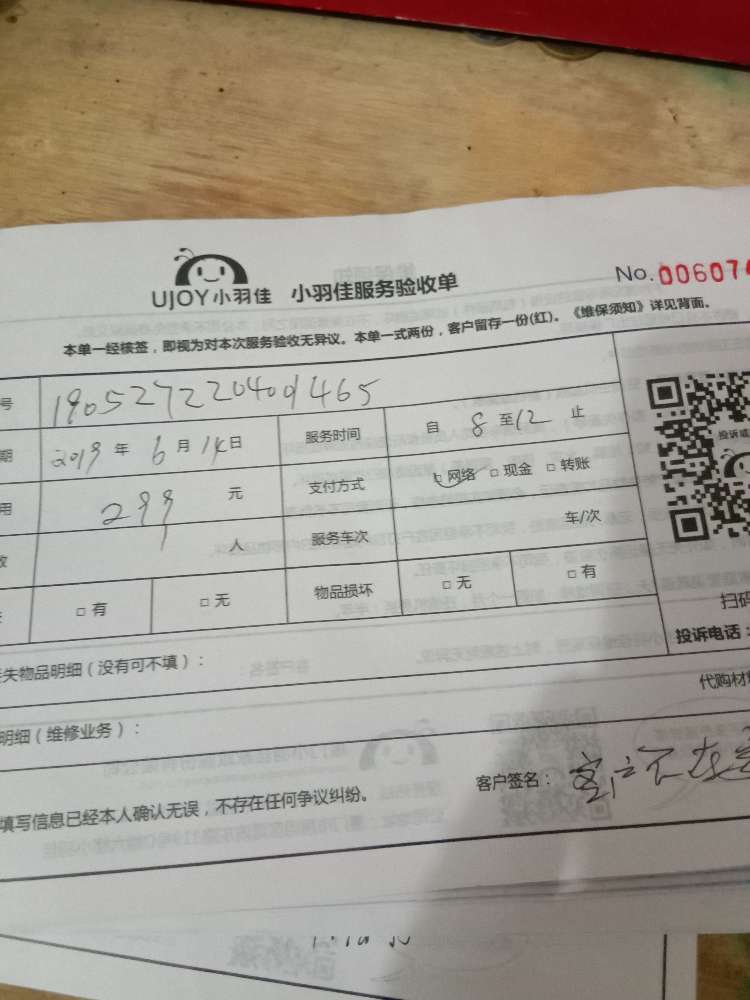 UJOY小羽佳 小羽佳服务验收单 No.006074
本单一经核签，即视为对本次服务验收无异议。本单一式两份，客户留存一份(红)。《维保须知》详见背面。
号 190527220401465
期 2019 年 6 月 14 日 服务时间 自 8 至 12 止
用 299 元 支付方式 □ 网络 □ 现金 □ 转账
人 服务车次 车/次
□ 有 □ 无 物品损坏 □ 无 □ 有
投诉或
扫码
投诉电话：
失物品明细（没有可不填）：
代购材
明细（维修业务）：
填写信息已经本人确认无误，不存在任何争议纠纷。 客户签名： 客户不在